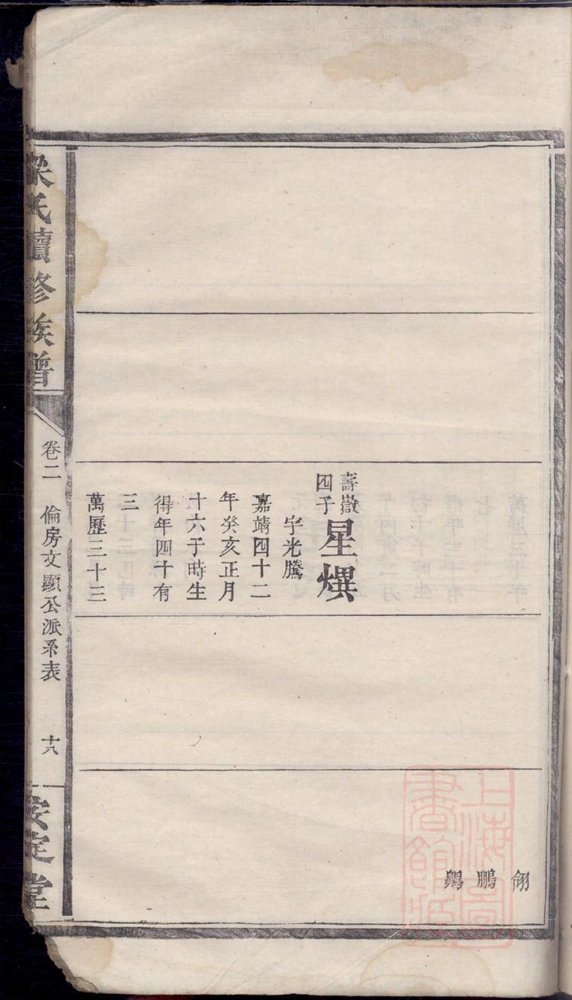 壽嶶
四子
星熼
字光騰
嘉靖四十二
年癸亥正月
十六子時生
得年四十有
三
萬歷三十三
翎
鵬
鷞
梁氏續修族譜
卷二
倫房文顯公派系表
十八
安定堂
上海圖書館藏